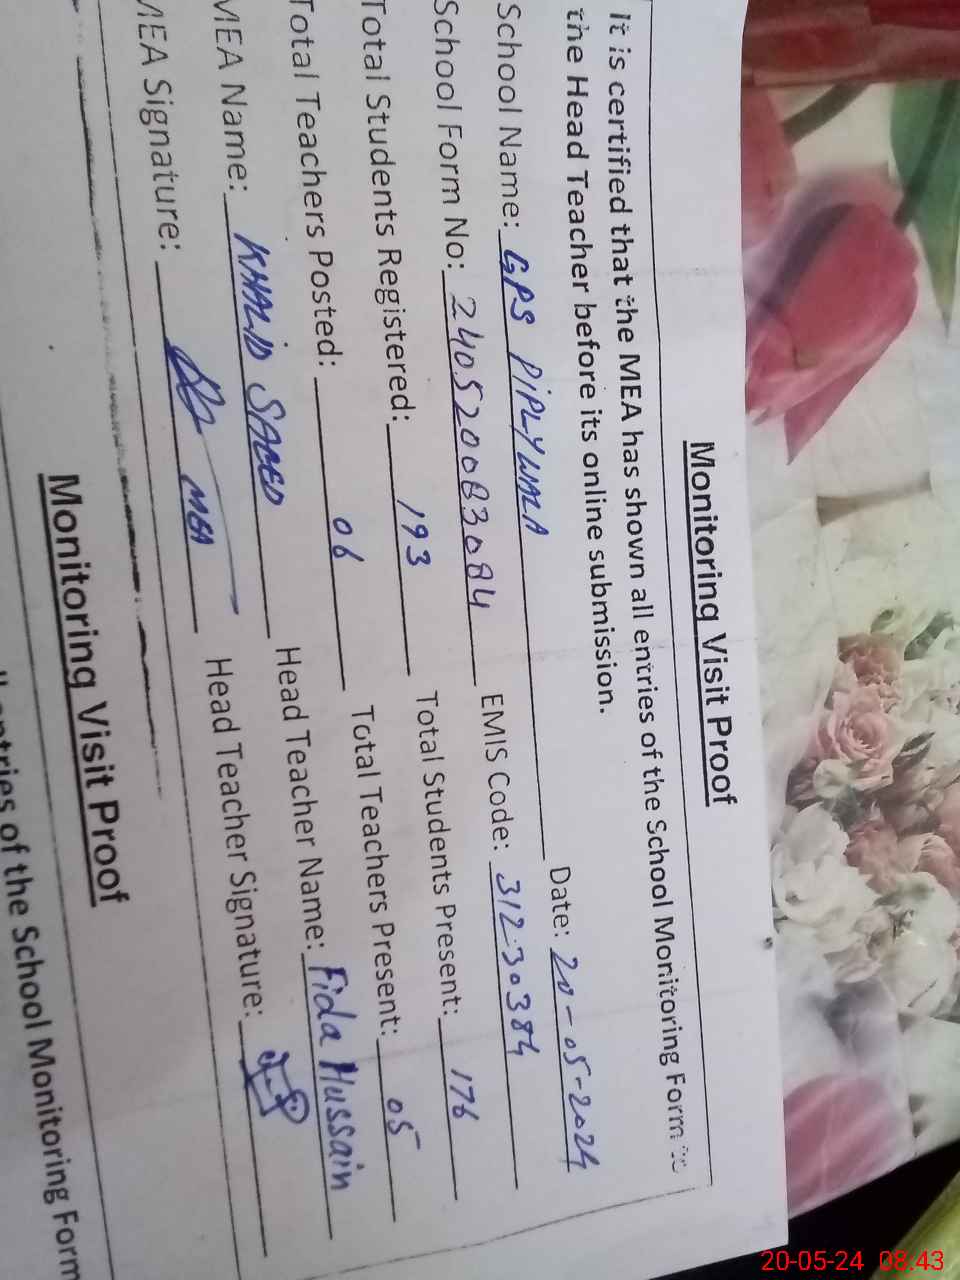 Monitoring Visit Proof
It is certified that the MEA has shown all entries of the School Monitoring Form to
the Head Teacher before its online submission.
School Name: GPS PIPLYWALA Date: 20-05-2024
School Form No: 24052008 3084 EMIS Code: 31230384
Total Students Registered: 193 Total Students Present: 176
Total Teachers Posted: 06 Total Teachers Present: 05
MEA Name: KHALID SAEED Head Teacher Name: Fida Hussain
MEA Signature: MEA Head Teacher Signature:
Monitoring Visit Proof
entries of the School Monitoring Form
20-05-24 08:43